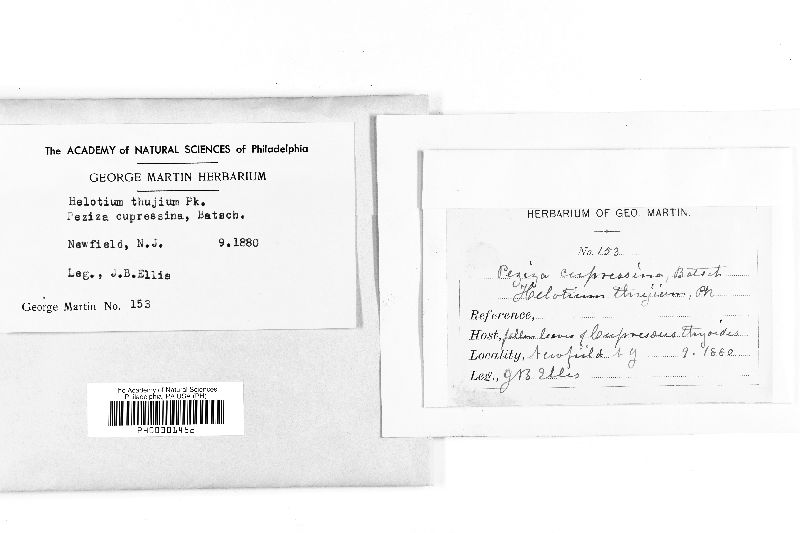 The ACADEMY of NATURAL SCIENCES of Philadelphia
GEORGE MARTIN HERBARIUM
Helotium thujium Pk.
Peziza cupressina, Batsch.
Newfield, N.J. 9.1880
Leg., J.B.Ellis
George Martin No. 153
The Academy of Natural Sciences
Philadelphia, PA USA (PH)
HERBARIUM OF GEO. MARTIN.
No. 153
Peziza cupressina, Batsch
Helotium thujium, Pk
Reference,
Host, fallen leaves of Cupressus thyoides
Locality, Newfield N J 9. 1880
Leg., J B Ellis